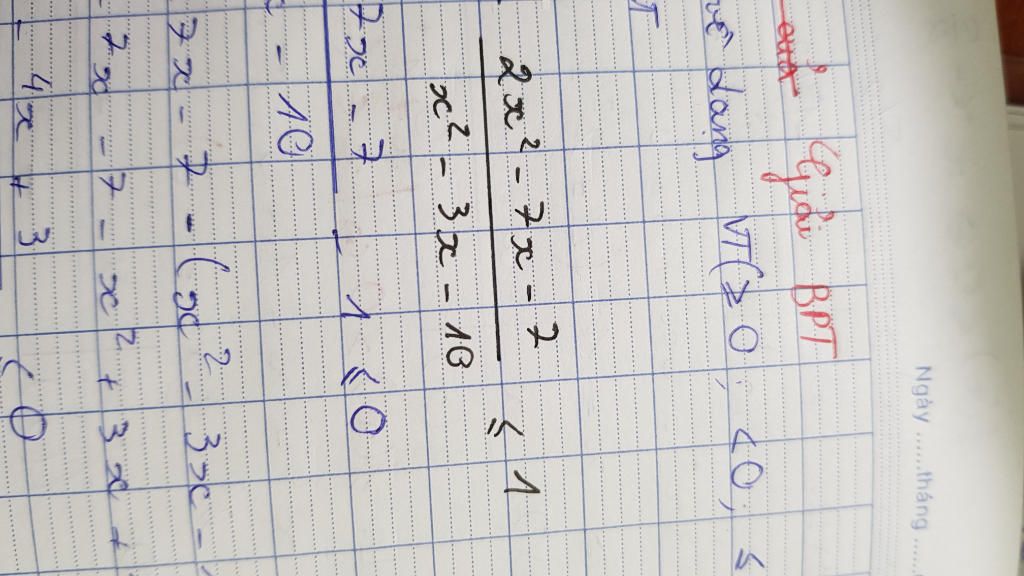 Ngày ...... tháng ......
Giải BPT
về dạng VT (≥ 0 ; < 0 ; ≤
2x² - 7x - 7
x² - 3x - 10 ≤ 1
7x - 7 - 1 ≤ 0
- 10
7x - 7 - (x² - 3x -
7x - 7 - x² + 3x +
- 4x + 3 ≤ 0